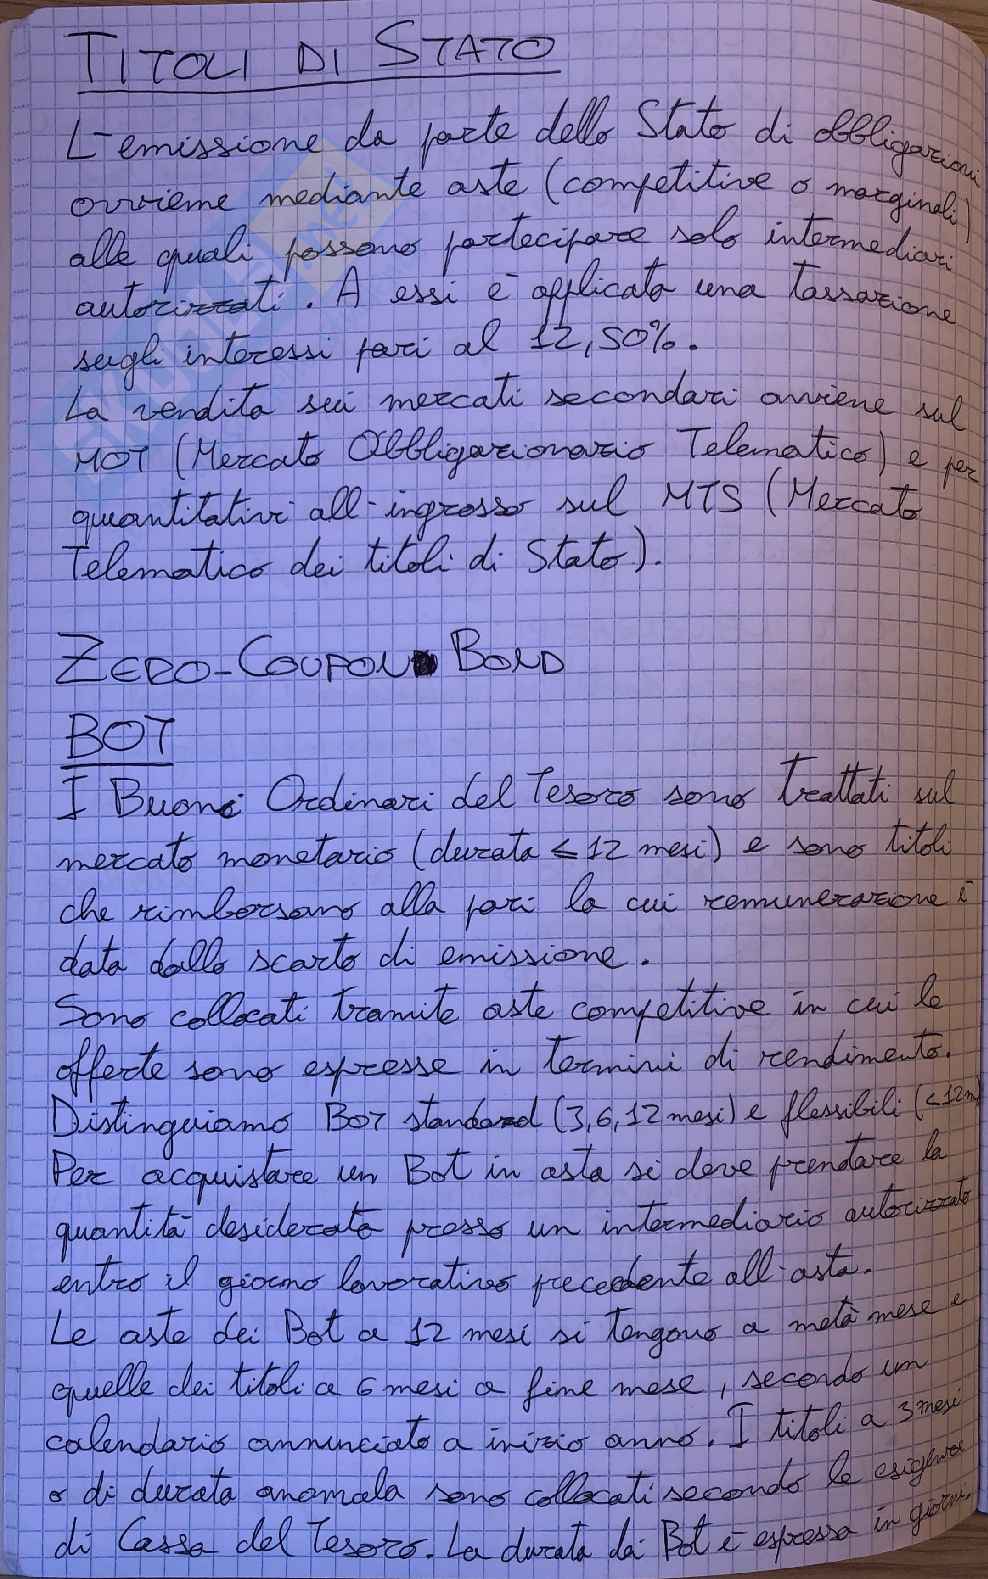 TITOLI DI STATO
L'emissione da parte dello Stato di obbligazioni
avviene mediante aste (competitive o marginali)
alle quali possono partecipare solo intermediari
autorizzati. A essi è applicata una tassazione
sugli interessi pari al 12,50%.
La vendita sui mercati secondari avviene sul
MOT (Mercato Obbligazionario Telematico) e per
quantitativi all'ingrosso sul MTS (Mercato
Telematico dei titoli di Stato).
ZERO-COUPON BOND
BOT
I Buoni Ordinari del Tesoro sono trattati sul
mercato monetario (durata ≤ 12 mesi) e sono titoli
che rimborsano alla pari la cui remunerazione è
data dallo scarto di emissione.
Sono collocati tramite aste competitive in cui le
offerte sono espresse in termini di rendimento.
Distinguiamo BOT standard (3,6,12 mesi) e flessibili (<12m)
Per acquistare un Bot in asta si deve prenotare la
quantità desiderata presso un intermediario autorizzato
entro il giorno lavorativo precedente all'asta.
Le aste dei Bot a 12 mesi si tengono a metà mese e
quelle dei titoli a 6 mesi a fine mese, secondo un
calendario annunciato a inizio anno. I titoli a 3 mesi
o di durata anomala sono collocati secondo le esigenze
di Cassa del Tesoro. La durata dei Bot è espressa in giorni.